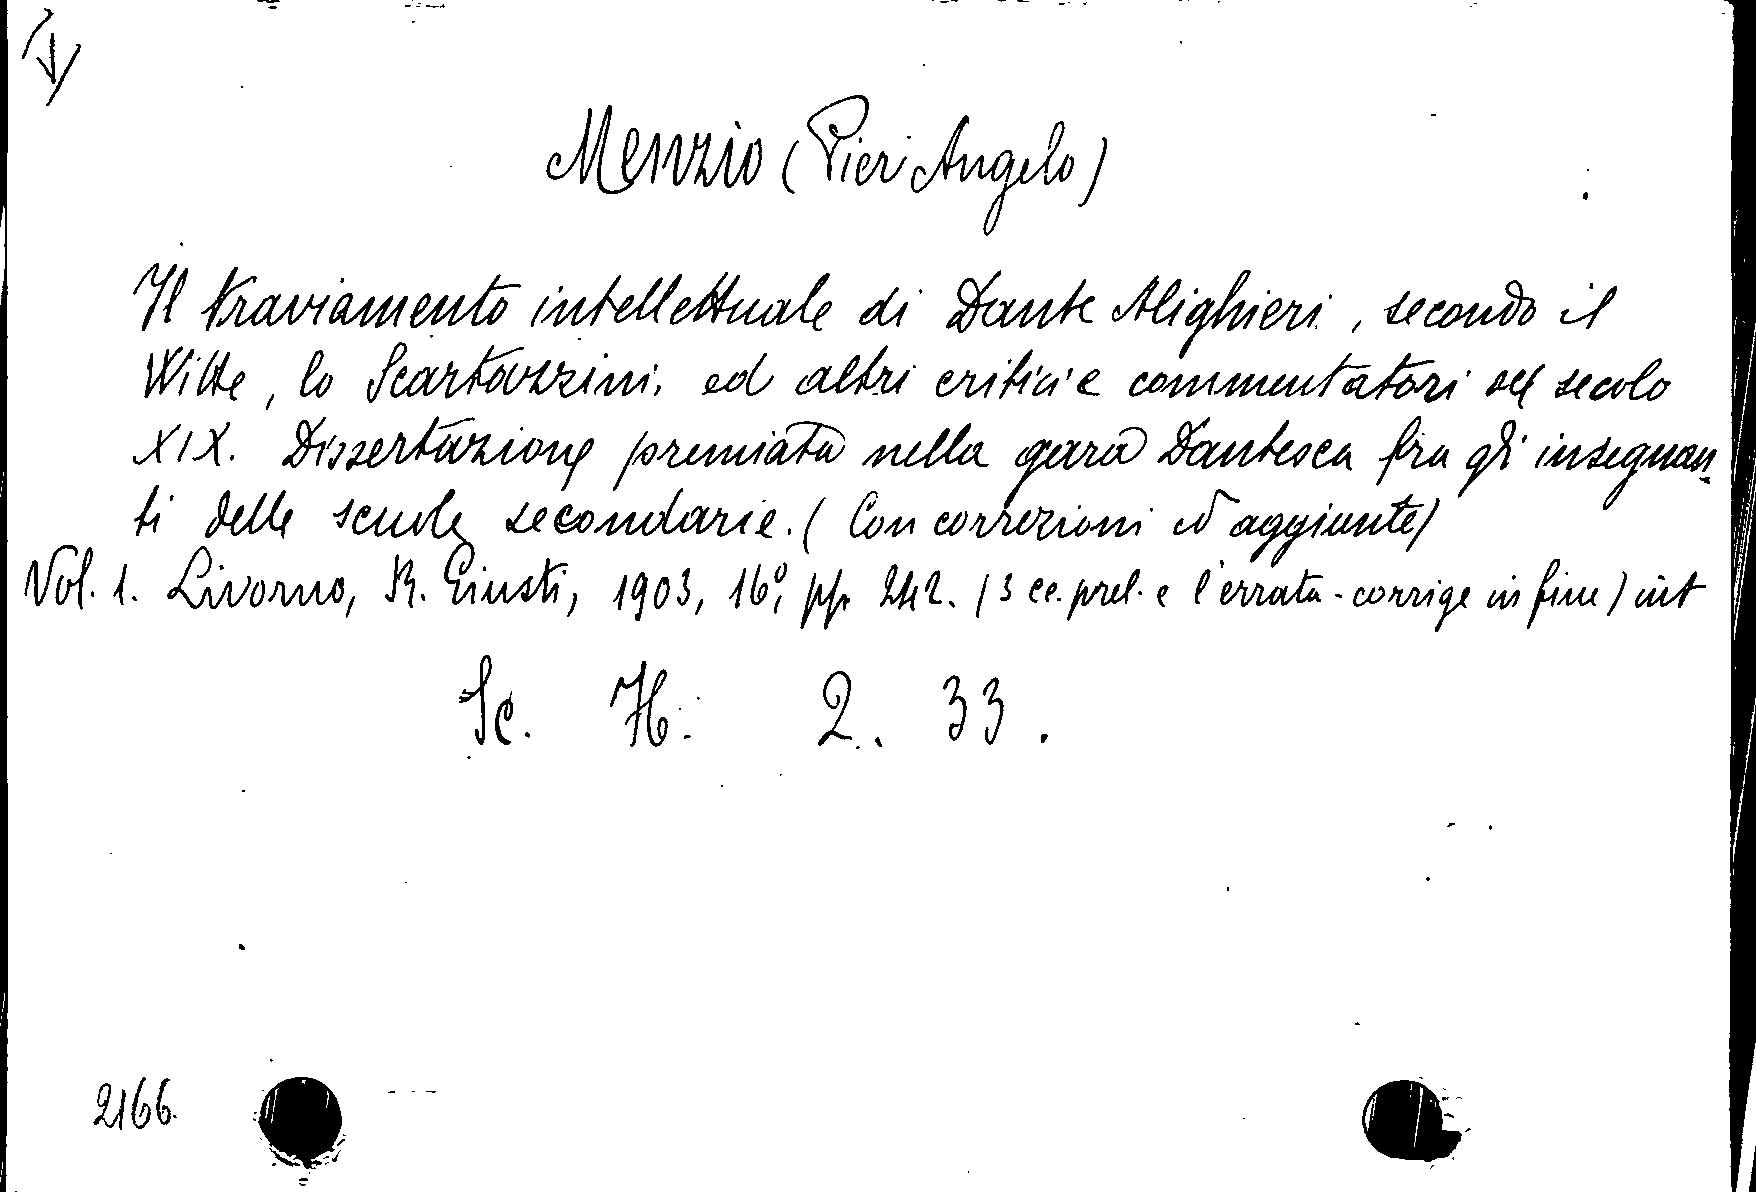 Menzio (Pier Angelo)
Il traviamento intellettuale di Dante Alighieri, secondo il
Witte, lo Scartazzini, ed altri critici e commentatori del secolo
XIX. Dissertazione premiata nella gara Dantesca fra gli insegnan-
ti delle scuole secondarie. (Con correzioni ed aggiunte)
Vol. 1. Livorno, R. Giusti, 1903, 16°, pp. 242. (3 cc. prel. e l'errata-corrige in fine) int
Sc. H. 2. 33.
2166.